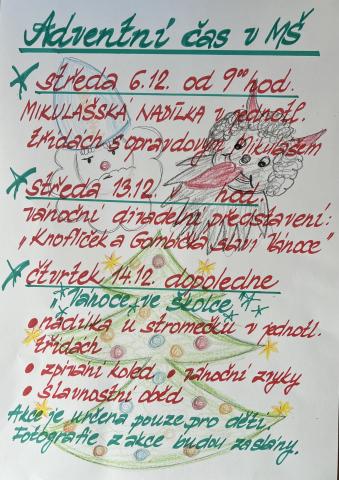 Adventní čas v MŠ
středa 6.12. od 9⁰⁰ hod.
MIKULÁŠSKÁ NADÍLKA v jednotl.
třídách s opravdovým Mikulášem
středa 13.12. v hod.
vánoční divadelní představení:
"Knoflíček a Gombička slaví Vánoce"
čtvrtek 14.12. dopoledne
"Vánoce ve školce"
• nadílka u stromečku v jednotl.
třídách
• zpívání koled • vánoční zvyky
• slavnostní oběd
Akce je určena pouze pro děti.
Fotografie z akce budou zaslány.